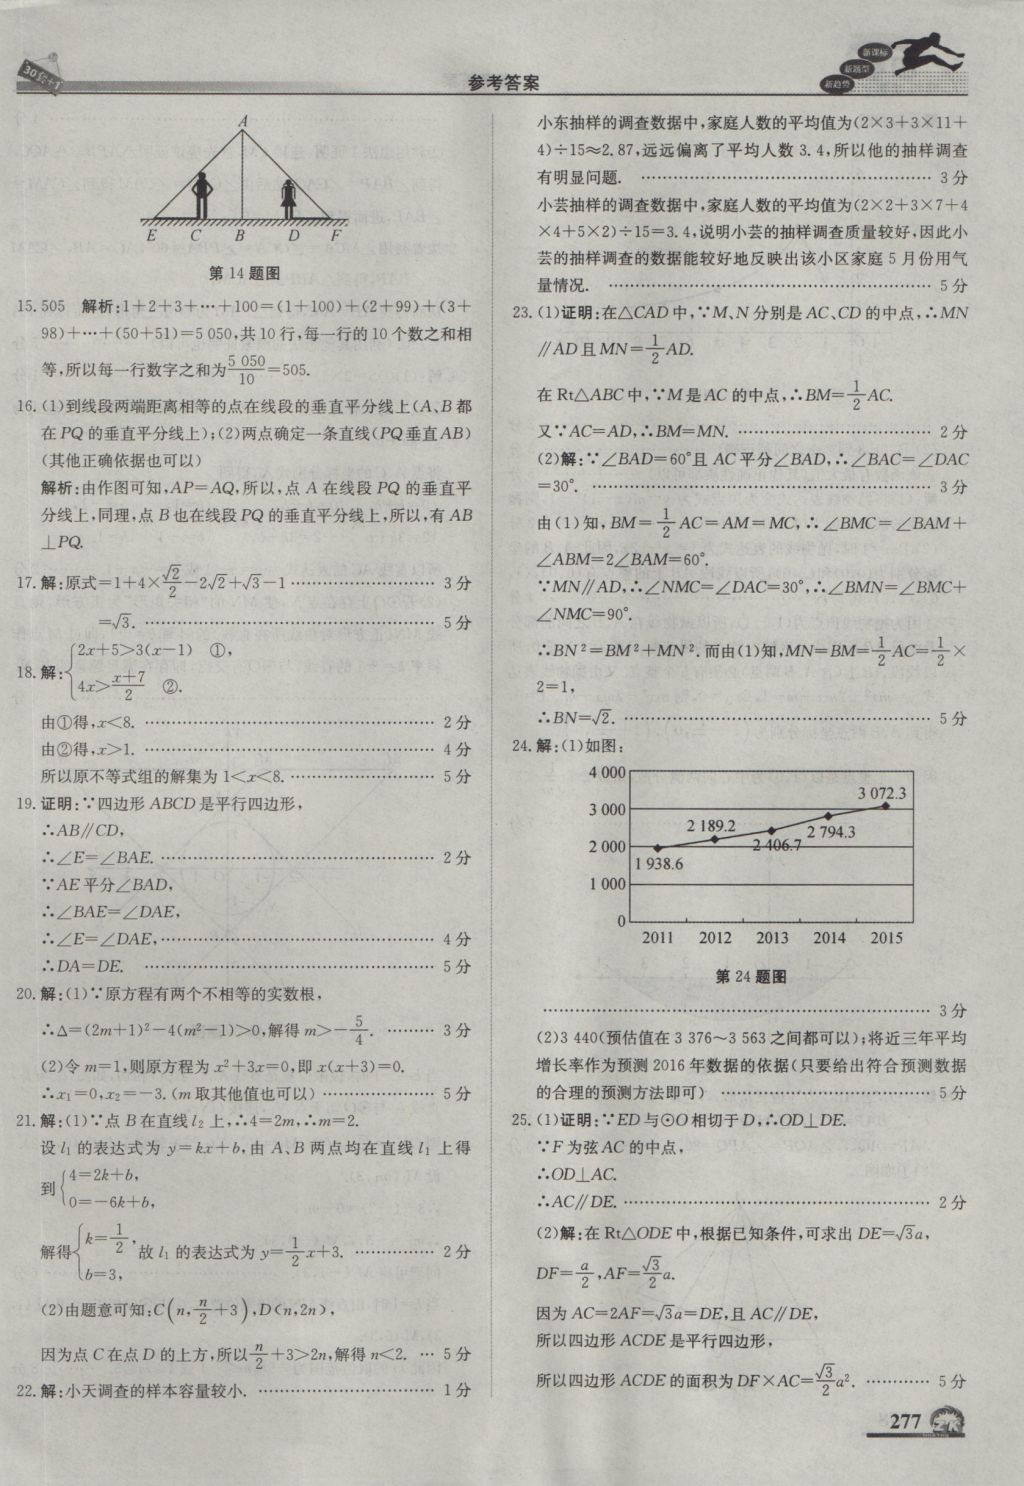 30套+1
参考答案
新课标
新题型
新趋势
A
E C B D F
第14题图
15. 505 解析:1+2+3+⋯+100=(1+100)+(2+99)+(3+
98)+⋯+(50+51)=5 050,共10行,每一行的10个数之和相
等,所以每一行数字之和为5 050/10=505.
16. (1)到线段两端距离相等的点在线段的垂直平分线上(A、B都
在PQ的垂直平分线上);(2)两点确定一条直线(PQ垂直AB)
(其他正确依据也可以)
解析:由作图可知,AP=AQ,所以,点A在线段PQ的垂直平
分线上,同理,点B也在线段PQ的垂直平分线上,所以,有AB
⊥PQ.
17. 解:原式=1+4×√2/2-2√2+√3-1 ⋯⋯ 3分
=√3. ⋯⋯ 5分
18. 解:{2x+5>3(x-1) ①,
4x>(x+7)/2 ②.
由①得,x<8. ⋯⋯ 2分
由②得,x>1. ⋯⋯ 4分
所以原不等式组的解集为1<x<8. ⋯⋯ 5分
19. 证明:∵四边形ABCD是平行四边形,
∴AB∥CD,
∴∠E=∠BAE. ⋯⋯ 2分
∵AE平分∠BAD,
∴∠BAE=∠DAE,
∴∠E=∠DAE, ⋯⋯ 4分
∴DA=DE. ⋯⋯ 5分
20. 解:(1)∵原方程有两个不相等的实数根,
∴Δ=(2m+1)²-4(m²-1)>0,解得m>-5/4. ⋯⋯ 3分
(2)令m=1,则原方程为x²+3x=0,即x(x+3)=0.
∴x₁=0,x₂=-3.(m取其他值也可以) ⋯⋯ 5分
21. 解:(1)∵点B在直线l₂上,∴4=2m,∴m=2.
设l₁的表达式为y=kx+b,由A、B两点均在直线l₁上得
到{4=2k+b,
0=-6k+b,
解得{k=1/2,
b=3, 故l₁的表达式为y=1/2x+3. ⋯⋯ 2分
(2)由题意可知:C(n,n/2+3),D(n,2n),
因为点C在点D的上方,所以n/2+3>2n,解得n<2. ⋯ 5分
22. 解:小天调查的样本容量较小. ⋯⋯ 1分
小东抽样的调查数据中,家庭人数的平均值为(2×3+3×11+
4)÷15≈2.87,远远偏离了平均人数3.4,所以他的抽样调查
有明显问题. ⋯⋯ 3分
小芸抽样的调查数据中,家庭人数的平均值为(2×2+3×7+4
×4+5×2)÷15=3.4,说明小芸的抽样调查质量较好,因此小
芸的抽样调查的数据能较好地反映出该小区家庭5月份用气
量情况. ⋯⋯ 5分
23. (1)证明:在△CAD中,∵M、N分别是AC、CD的中点,∴MN
∥AD且MN=1/2AD.
在Rt△ABC中,∵M是AC的中点,∴BM=1/2AC.
又∵AC=AD,∴BM=MN. ⋯⋯ 2分
(2)解:∵∠BAD=60°且AC平分∠BAD,∴∠BAC=∠DAC
=30°. ⋯⋯ 3分
由(1)知,BM=1/2AC=AM=MC,∴∠BMC=∠BAM+
∠ABM=2∠BAM=60°.
∵MN∥AD,∴∠NMC=∠DAC=30°,∴∠BMN=∠BMC+
∠NMC=90°.
∴BN²=BM²+MN².而由(1)知,MN=BM=1/2AC=1/2×
2=1,
∴BN=√2. ⋯⋯ 5分
24. 解:(1)如图:
4 000
3 000
2 000
1 000
0
1 938.6
2 189.2
2 406.7
2 794.3
3 072.3
2011 2012 2013 2014 2015
第24题图
⋯⋯ 3分
(2)3 440(预估值在3 376~3 563之间都可以);将近三年平均
增长率作为预测2016年数据的依据(只要给出符合预测数据
的合理的预测方法即可) ⋯⋯ 5分
25. (1)证明:∵ED与⊙O相切于D,∴OD⊥DE.
∵F为弦AC的中点,
∴OD⊥AC.
∴AC∥DE. ⋯⋯ 2分
(2)解:在Rt△ODE中,根据已知条件,可求出DE=√3a,
DF=a/2,AF=√3/2a.
因为AC=2AF=√3a=DE,且AC∥DE,
所以四边形ACDE是平行四边形,
所以四边形ACDE的面积为DF×AC=√3/2a². ⋯⋯ 5分
277
ZK